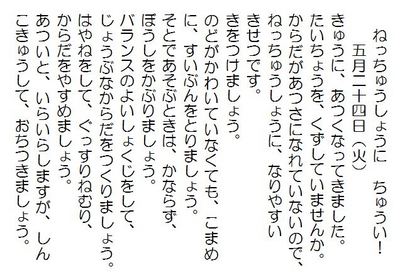 ねっちゅうしょうに　ちゅうい！
五月二十四日（火）
きゅうに、あつくなってきました。
たいちょうを、くずしていませんか。
からだがあつさになれていないので、
ねっちゅうしょうに、なりやすい
きせつです。
きをつけましょう。
のどがかわいていなくても、こまめ
に、すいぶんをとりましょう。
そとであそぶときは、かならず、
ぼうしをかぶりましょう。
バランスのよいしょくじをして、
じょうぶなからだをつくりましょう。
はやねをして、ぐっすりねむり、
からだをやすめましょう。
あついと、いらいらしますが、しん
こきゅうして、おちつきましょう。